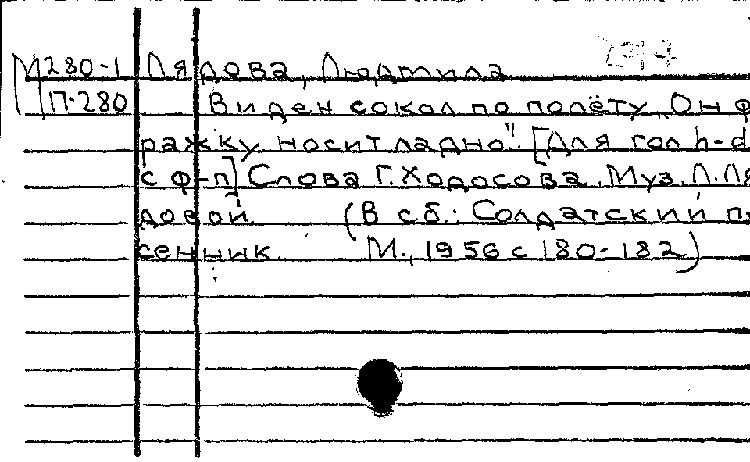 М280-1 Лядова, Людмила
П-280 Виден сокол по полёту, Он ф
ражку носит ладно". [Для гол h-d
с ф-п] Слова Г. Ходосова. Муз. Л. Ля
довой. (В сб.: Солдатский п
сенник. М., 1956 с 180-182)